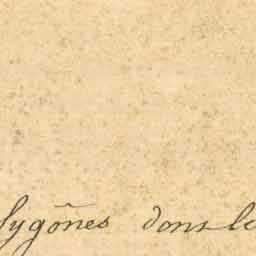 lygônes dont le